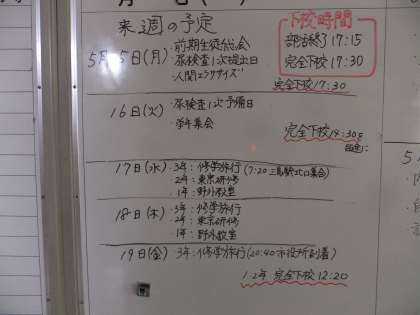 月 (
来週の予定
下校時間
部活終了 17:15
完全下校 17:30
5月15日(月)
・前期生徒総会
・尿検査1次提出日
・人間エクササイズ
完全下校 17:30
16日(火)
・尿検査1次予備日
・学年集会
完全下校
17日(水)
3年:修学旅行(7:20三島駅北口集合)
2年:東京研修
1年:野外教室
18日(木)
・3年:修学旅行
・2年:東京研修
・1年:野外教室
19日(金)
3年:修学旅行(20:40市役所到着)
1・2年 完全下校 12:20
5